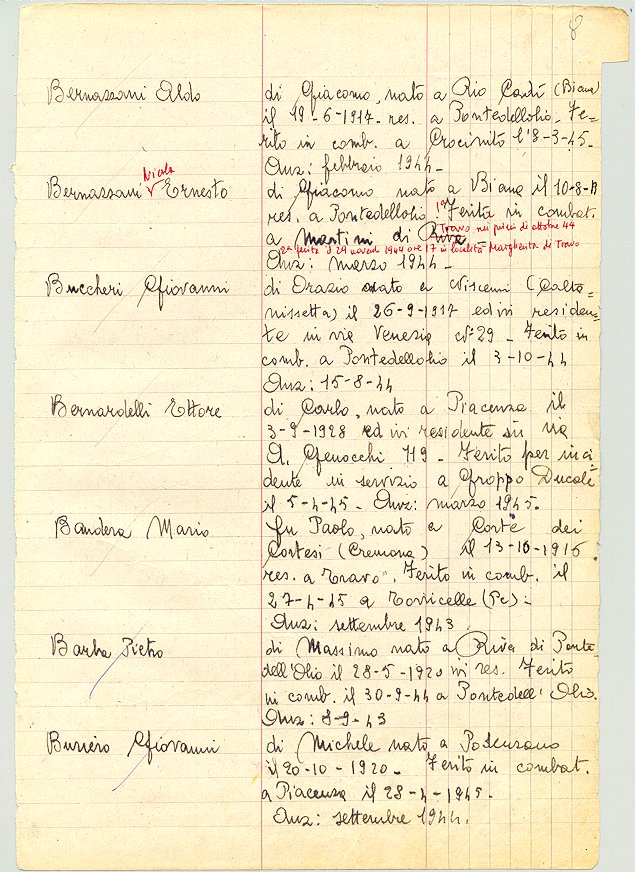 8
Bernazzani Aldo di Giacomo, nato a Rio Cardi (Biana)
il 19-6-1917- res. a Pontedellolio- Fe-
rito in comb. a Crocinito l'8-3-45-
Anz: febbraio 1944-
Nicola
Bernazzani V Ernesto di Giacomo nato a Biana il 10-8-
res. a Pontedellolio 1ª Ferita in combat.
a Martini di Riva Travo nei primi di ottobre 44
2ª ferita il 29 novemb 1944 ore 17 in località Margherita di Travo
Anz: marzo 1944-
Buccheri Giovanni di Orazio nato a Niscemi (Calta-
nissetta) il 26-9-1917 ed ivi residen-
te in via Venezia N° 29 - Ferito in
comb. a Pontedellolio il 3-10-44
Anz: 15-8-44
Bernardelli Ettore di Carlo, nato a Piacenza il
3-9-1928 ed ivi residente in via
A. Genocchi 119- Ferito per inci-
dente in servizio a Groppo Ducale
il 5-4-45- Anz: marzo 1945-
Bandera Mario fu Paolo, nato a Corte dei
Cortesi (Cremona) il 13-10-1916
res. a Travo. Ferito in comb. il
27-4-45 a Torricelle (Pc)-
Anz: settembre 1943
Barba Pietro di Massimo nato a Riva di Ponte-
dell'Olio il 28-5-1920 ivi res. Ferito
in comb. il 30-9-44 a Pontedell'Olio.
Anz: 8-9-43
Busiero Giovanni di Michele nato a Podenzano
il 20-10-1920- Ferito in combat.
a Piacenza il 28-4-1945-
Anz: settembre 1944.